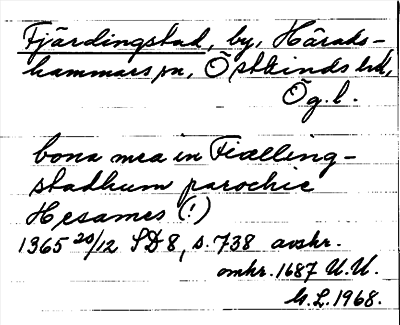 Fjärdingstad, by, Härads-
hammars sn, Östkinds hd,
Ög. l.
bona mea in Fiælling-
stadhum parochie
Hesames (!)
1365 20/12 SD 8, s. 738 avskr.
omkr. 1687 U.U.
G.L. 1968.